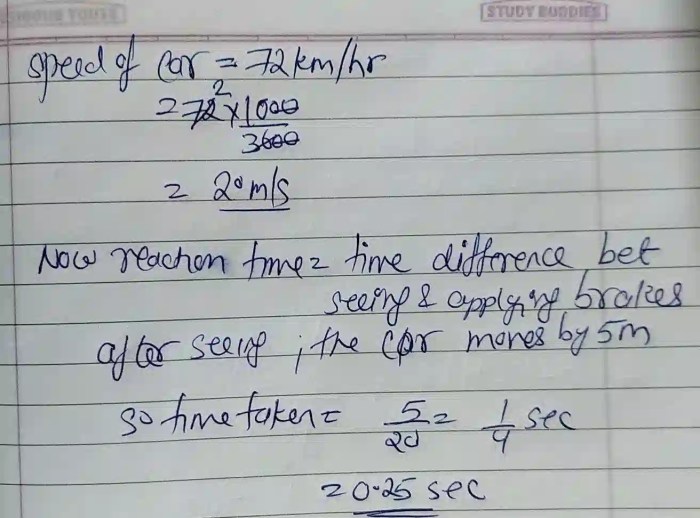 STUDY BUDDIES
speed of car = 72 km/hr
= 72 2 × 1000
3600
= 20 m/s
Now reaction time = time difference bet
seeing & applying brakes
after seeing ; the car moves by 5m
so time taken = 5/20 = 1/4 sec
= 0.25 sec